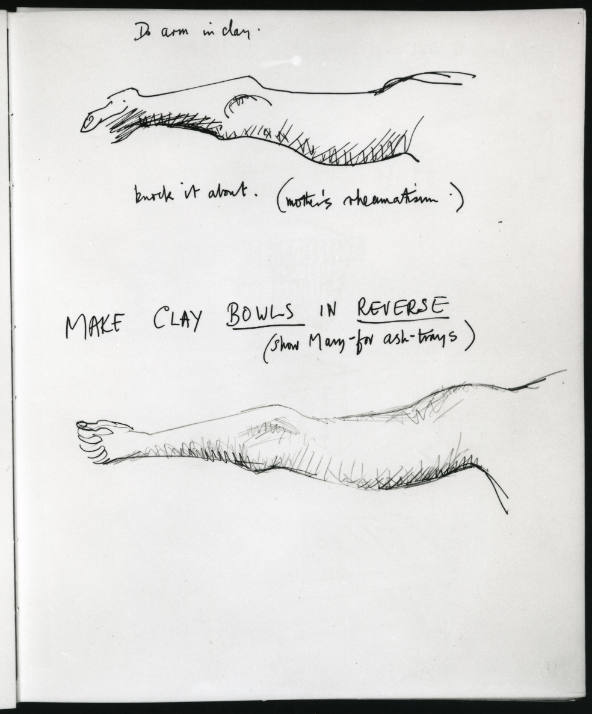 Do arm in clay.
knock it about. (mother's rheumatism.)
MAKE CLAY BOWLS IN REVERSE
(show Mary-for ash-trays)